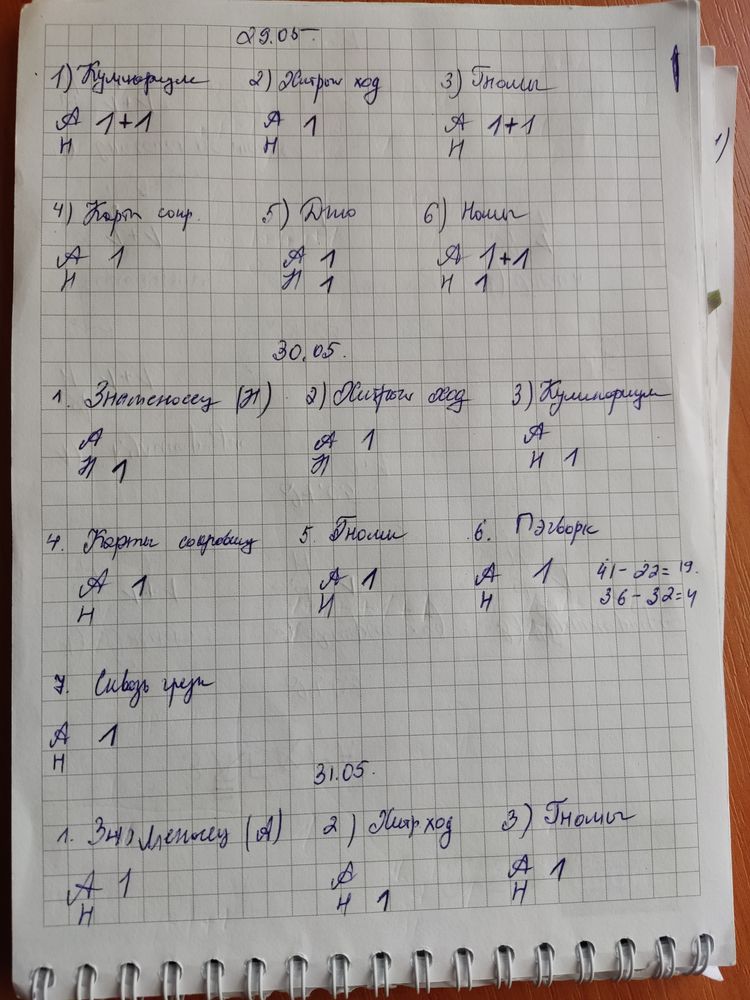 29.05.
1) Кулинариум 2) Хитрый ход 3) Гномы
А 1+1 А 1 А 1+1
Н Н Н
4) Карты сокр. 5) Дıо 6) Номы
А 1 А 1 А 1+1
Н Н 1 Н 1
30.05.
1. Знаменосец (Н) 2) Хитрый ход 3) Кулинариум
А А 1 А
Н 1 Н Н 1
4. Карты сокровищ 5. Гномы 6. Пэчворк
А 1 А 1 А 1 41-22=19.
Н Н Н 36-32=4
7. Сквозь грёзы
А 1
Н
31.05.
1. Знаменосец (А) 2) Хитр ход 3) Гномы
А 1 А А 1
Н Н 1 Н
1)